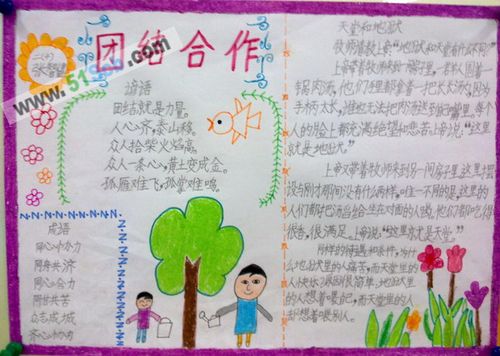 团结合作
谚语
团结就是力量。
人心齐,泰山移。
众人拾柴火焰高。
众人一条心,黄土变成金。
孤雁难飞,孤掌难鸣。
成语
同心协力
同舟共济
同心合力
同甘共苦
众志成城
齐心协力
天堂和地狱
牧师请教上帝:"地狱和天堂有什么不同?"
上帝带着牧师来到一间房子里。一群人围着一
锅肉汤,他们手里都拿着一把长长的汤,因为
手柄太长,谁也无法把肉汤送到自己嘴里。每个
人的脸上都充满绝望和悲苦。上帝说:"这里
就是地狱。"
上帝又带着牧师来到另一间房子里,这里摆
设与刚才那间没有什么两样,唯一不同的是,这里的
人们都把汤舀给坐在对面的人喝。他们都吃得
很香,很满足。上帝说:"这里就是天堂。"
同样的待遇和条件,为什
么地狱里的人痛苦,而天堂里的
人快乐?原因很简单:地狱里
的人想着喂自己,而天堂里的人
却想着喂别人。
www.51
.com